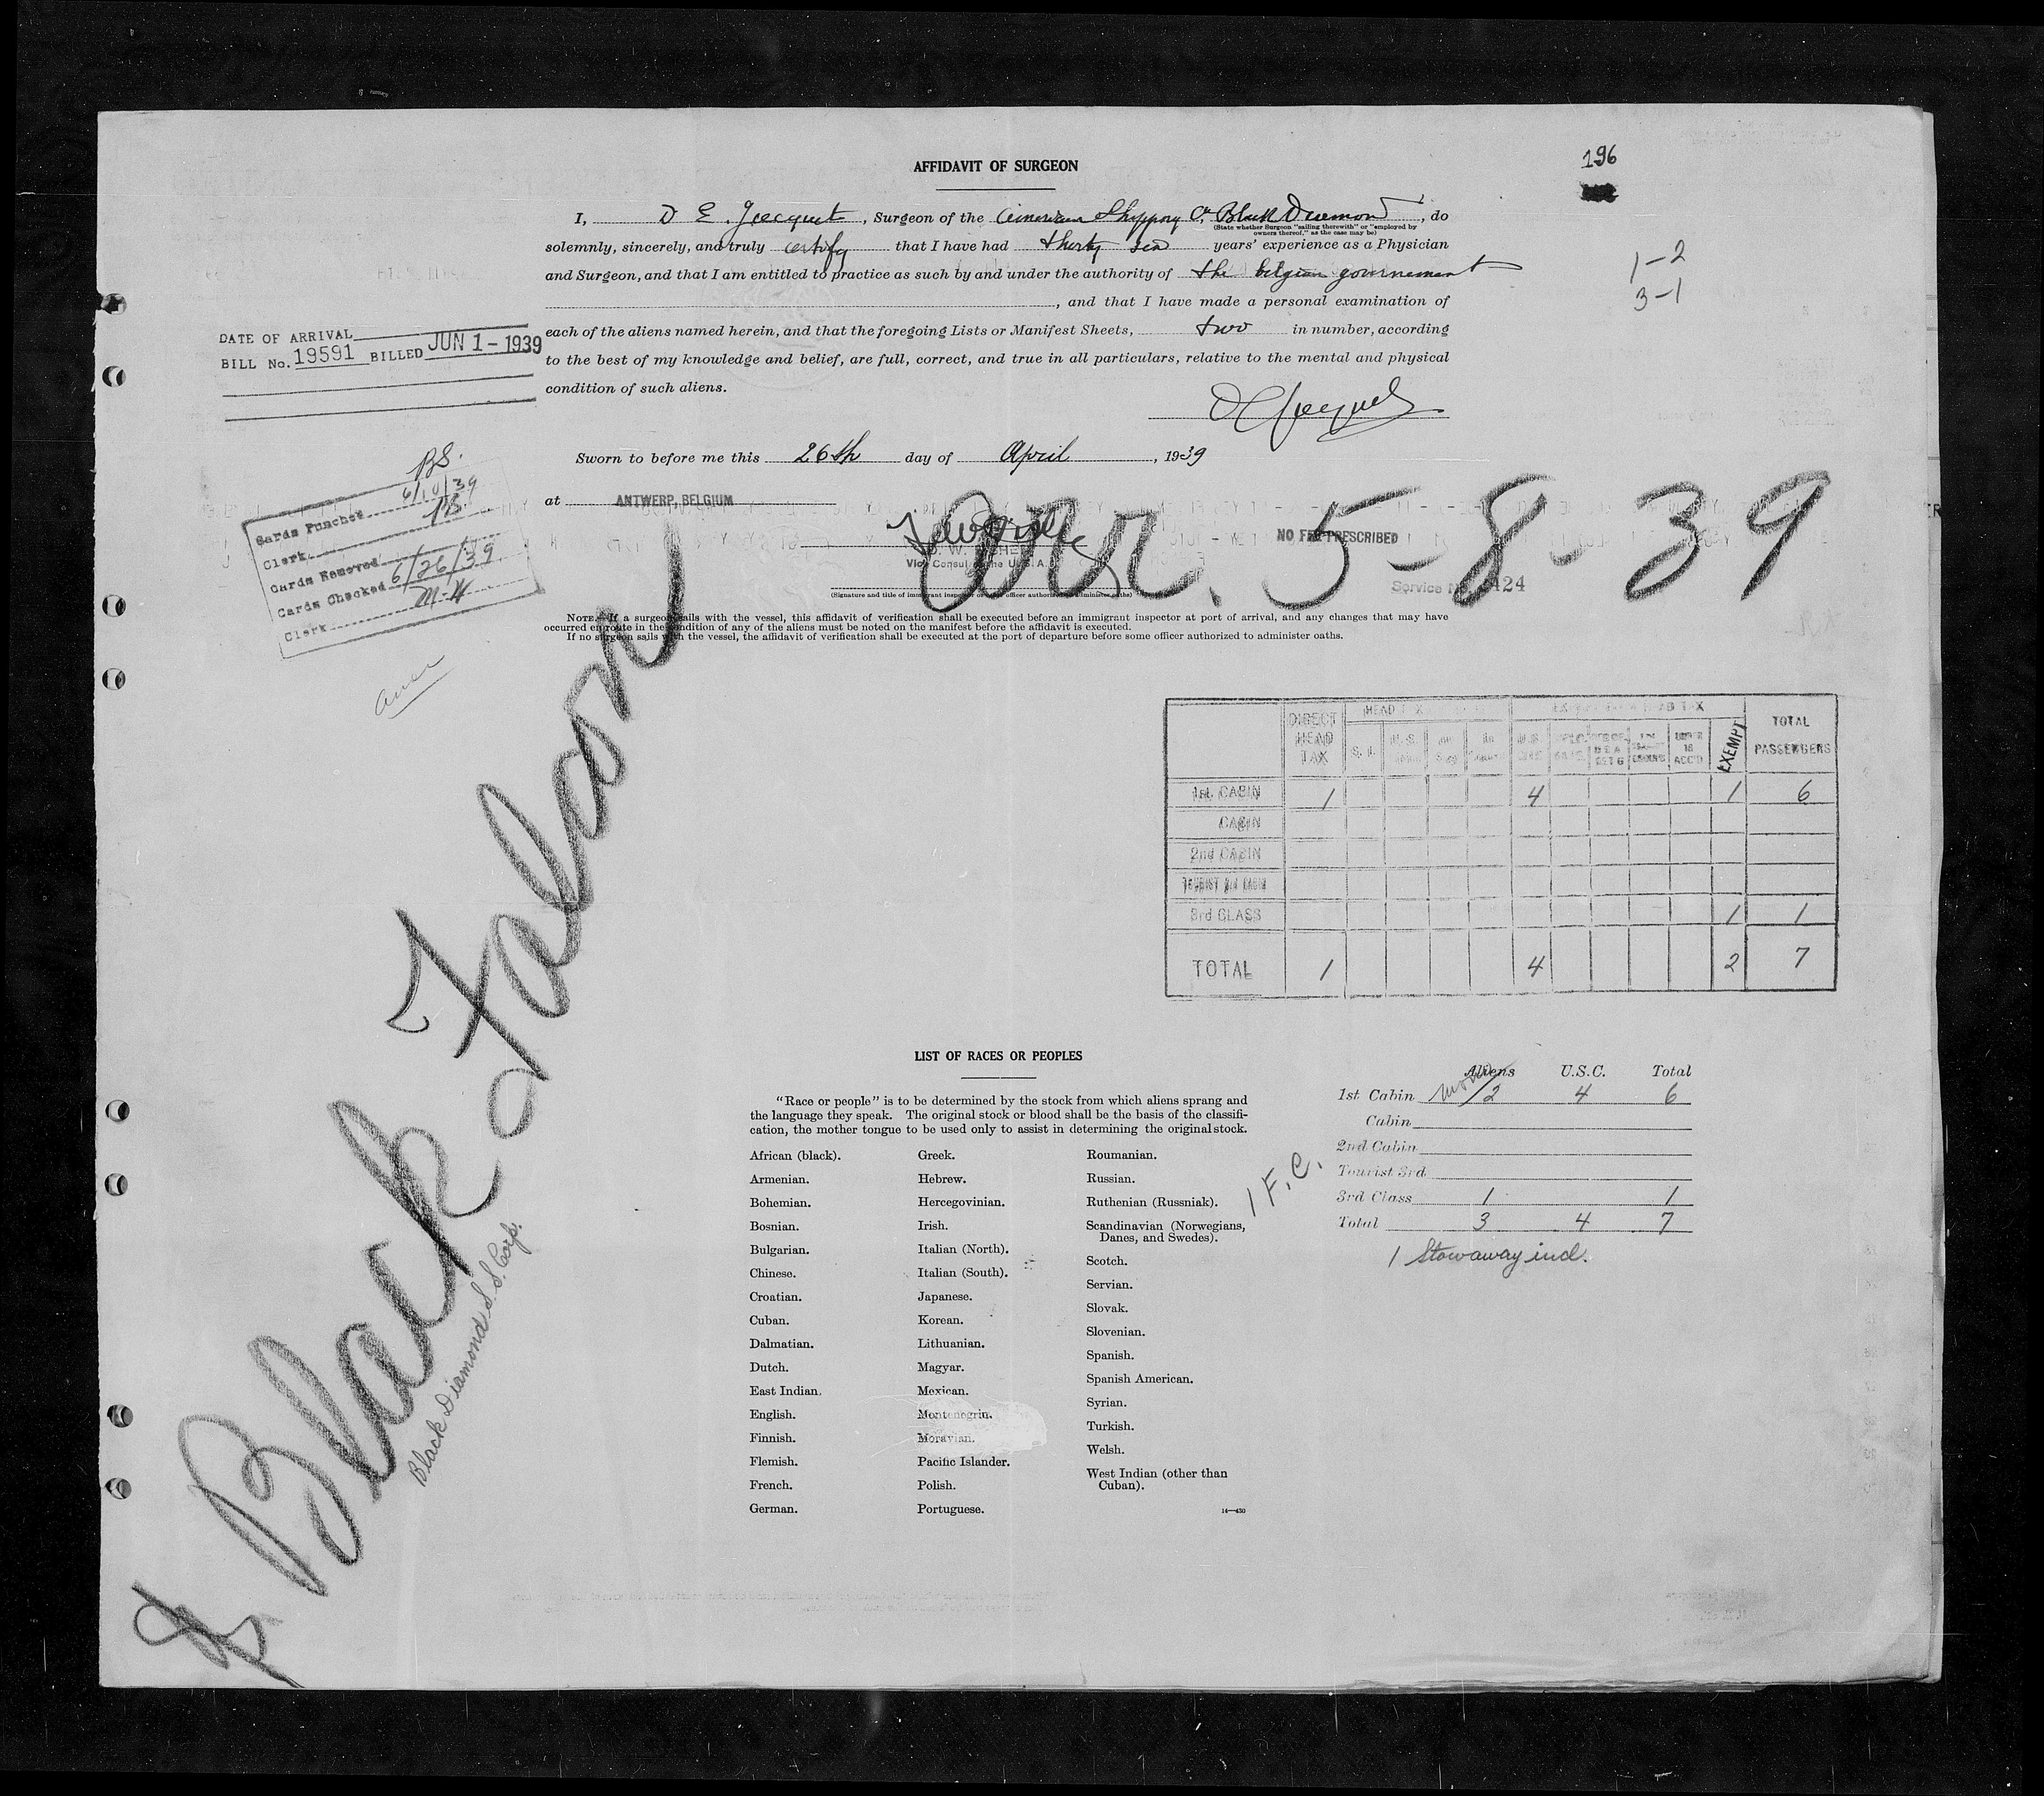 AFFIDAVIT OF SURGEON
196
I, D E. Jacquet, Surgeon of the American Shippping Co. Black Diamond, do
(State whether Surgeon "sailing therewith" or "employed by
owners thereof," as the case may be)
solemnly, sincerely, and truly certify that I have had thirty six years' experience as a Physician
and Surgeon, and that I am entitled to practice as such by and under the authority of the belgian governement
, and that I have made a personal examination of
each of the aliens named herein, and that the foregoing Lists or Manifest Sheets, two in number, according
to the best of my knowledge and belief, are full, correct, and true in all particulars, relative to the mental and physical
condition of such aliens.
1-2
3-1
DATE OF ARRIVAL
BILL No. 19591 BILLED JUN 1-1939
Sworn to before me this 26th day of April, 1939
at ANTWERP, BELGIUM
Arr. 5-8-39
NO FEE PRESCRIBED
Vice Consul of the U.S.A.
Service No. 424
(Signature and title of immigrant inspector or other officer authorized to administer oaths)
NOTE.—If a surgeon sails with the vessel, this affidavit of verification shall be executed before an immigrant inspector at port of arrival, and any changes that may have
occurred en route in the condition of any of the aliens must be noted on the manifest before the affidavit is executed.
If no surgeon sails with the vessel, the affidavit of verification shall be executed at the port of departure before some officer authorized to administer oaths.
BS.
Cards Punched 6/10/39
Clerk BS
Cards Removed
Cards Checked 6/26/39
Clerk M-H
Black Falcon
Black Diamond S.S. Corp.
DIRECT HEAD TAX
HEAD TAX
EXEMPT
TOTAL PASSENGERS
1st. CABIN 1 4 1 6
CABIN
2nd CABIN
TOURIST 3rd CABIN
3rd CLASS 1 1
TOTAL 1 4 2 7
LIST OF RACES OR PEOPLES
"Race or people" is to be determined by the stock from which aliens sprang and
the language they speak. The original stock or blood shall be the basis of the classifi-
cation, the mother tongue to be used only to assist in determining the original stock.
African (black).
Armenian.
Bohemian.
Bosnian.
Bulgarian.
Chinese.
Croatian.
Cuban.
Dalmatian.
Dutch.
East Indian.
English.
Finnish.
Flemish.
French.
German.
Greek.
Hebrew.
Hercegovinian.
Irish.
Italian (North).
Italian (South).
Japanese.
Korean.
Lithuanian.
Magyar.
Mexican.
Montenegrin.
Moravian.
Pacific Islander.
Polish.
Portuguese.
Roumanian.
Russian.
Ruthenian (Russniak).
Scandinavian (Norwegians,
Danes, and Swedes).
Scotch.
Servian.
Slovak.
Slovenian.
Spanish.
Spanish American.
Syrian.
Turkish.
Welsh.
West Indian (other than
Cuban).
14—430
Aliens U.S.C. Total
1st Cabin 2 4 6
Cabin
2nd Cabin
Tourist 3rd
3rd Class 1 1
Total 3 4 7
1 F.C.
1 Stowaway incl.